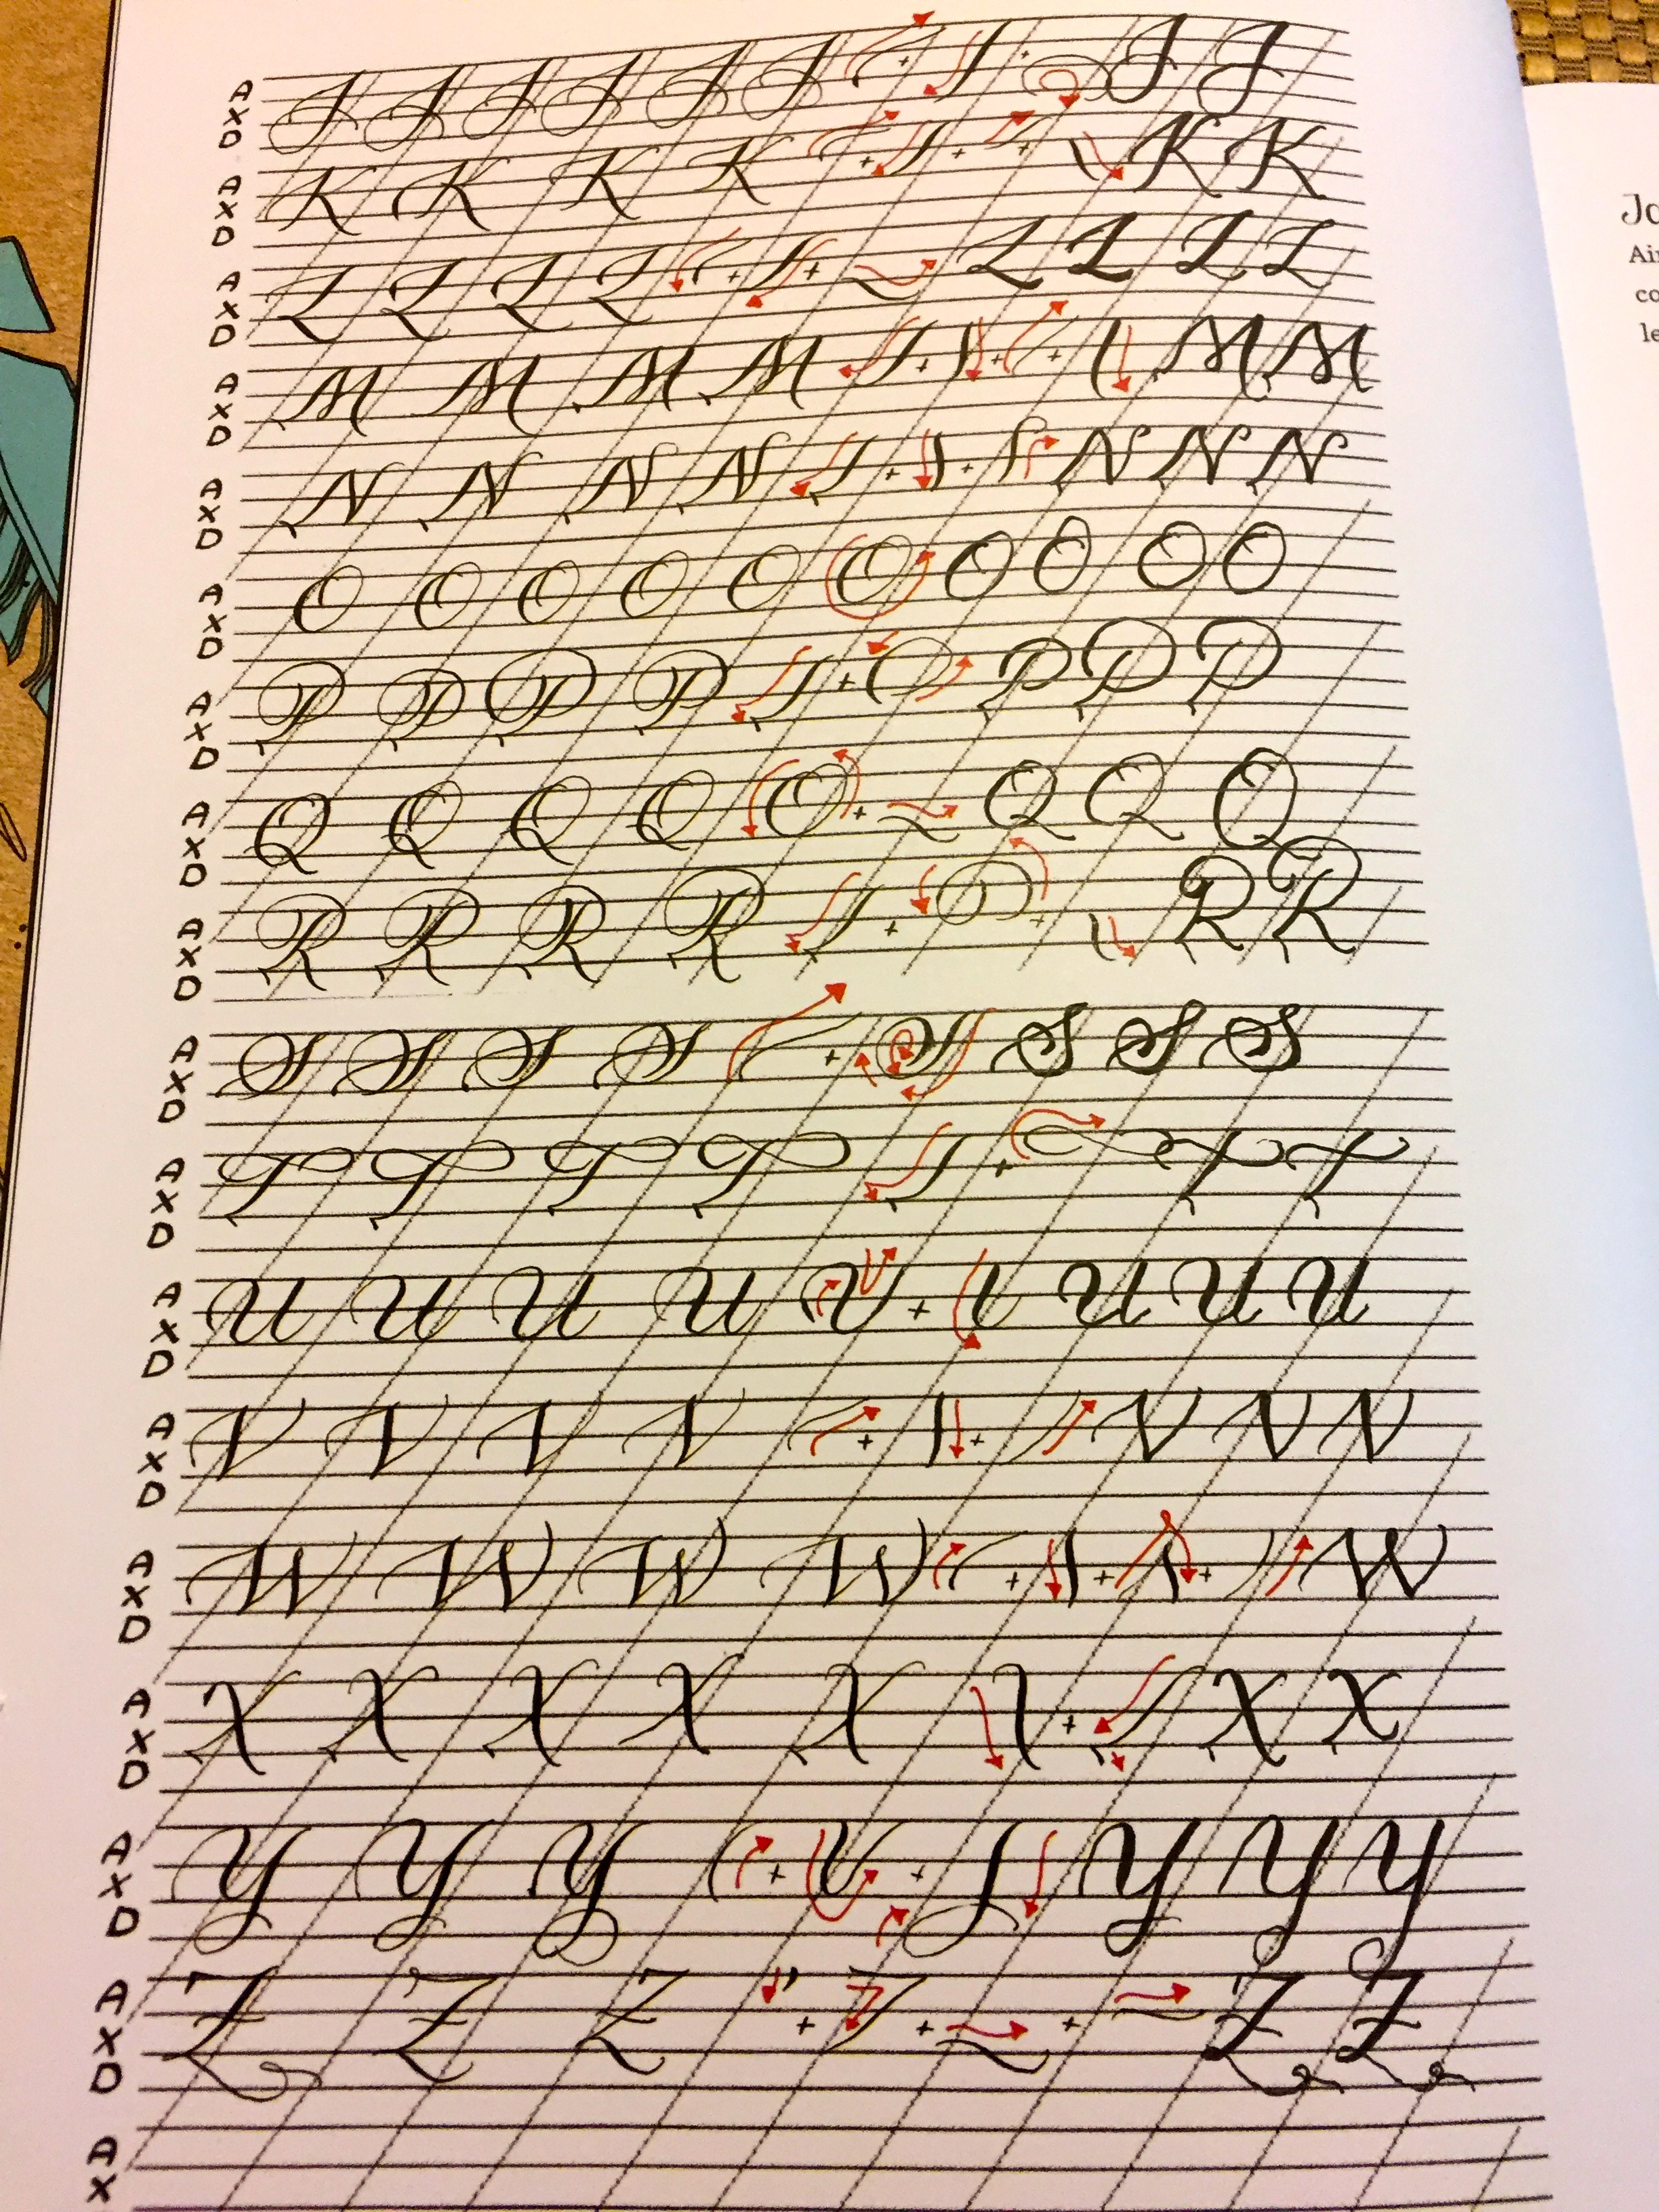 A X D J J J J J J + + J J
A X D K K K K + + + K K
A X D L L L L + + L L L L
A X D M M M M + + + M M
A X D N N N N + + N N N
A X D O O O O O O O O O O
A X D P P P P + P P P
A X D Q Q Q Q + Q Q Q
A X D R R R R + + R R
A X D S S S S + S S S S
A X D T T T T + T T
A X D U U U U + U U U
A X D V V V V + + V V V
A X D W W W W + + + W
A X D X X X X X + X X
A X D Y Y Y + + Y Y Y
A X D Z Z Z + + + Z Z
A X